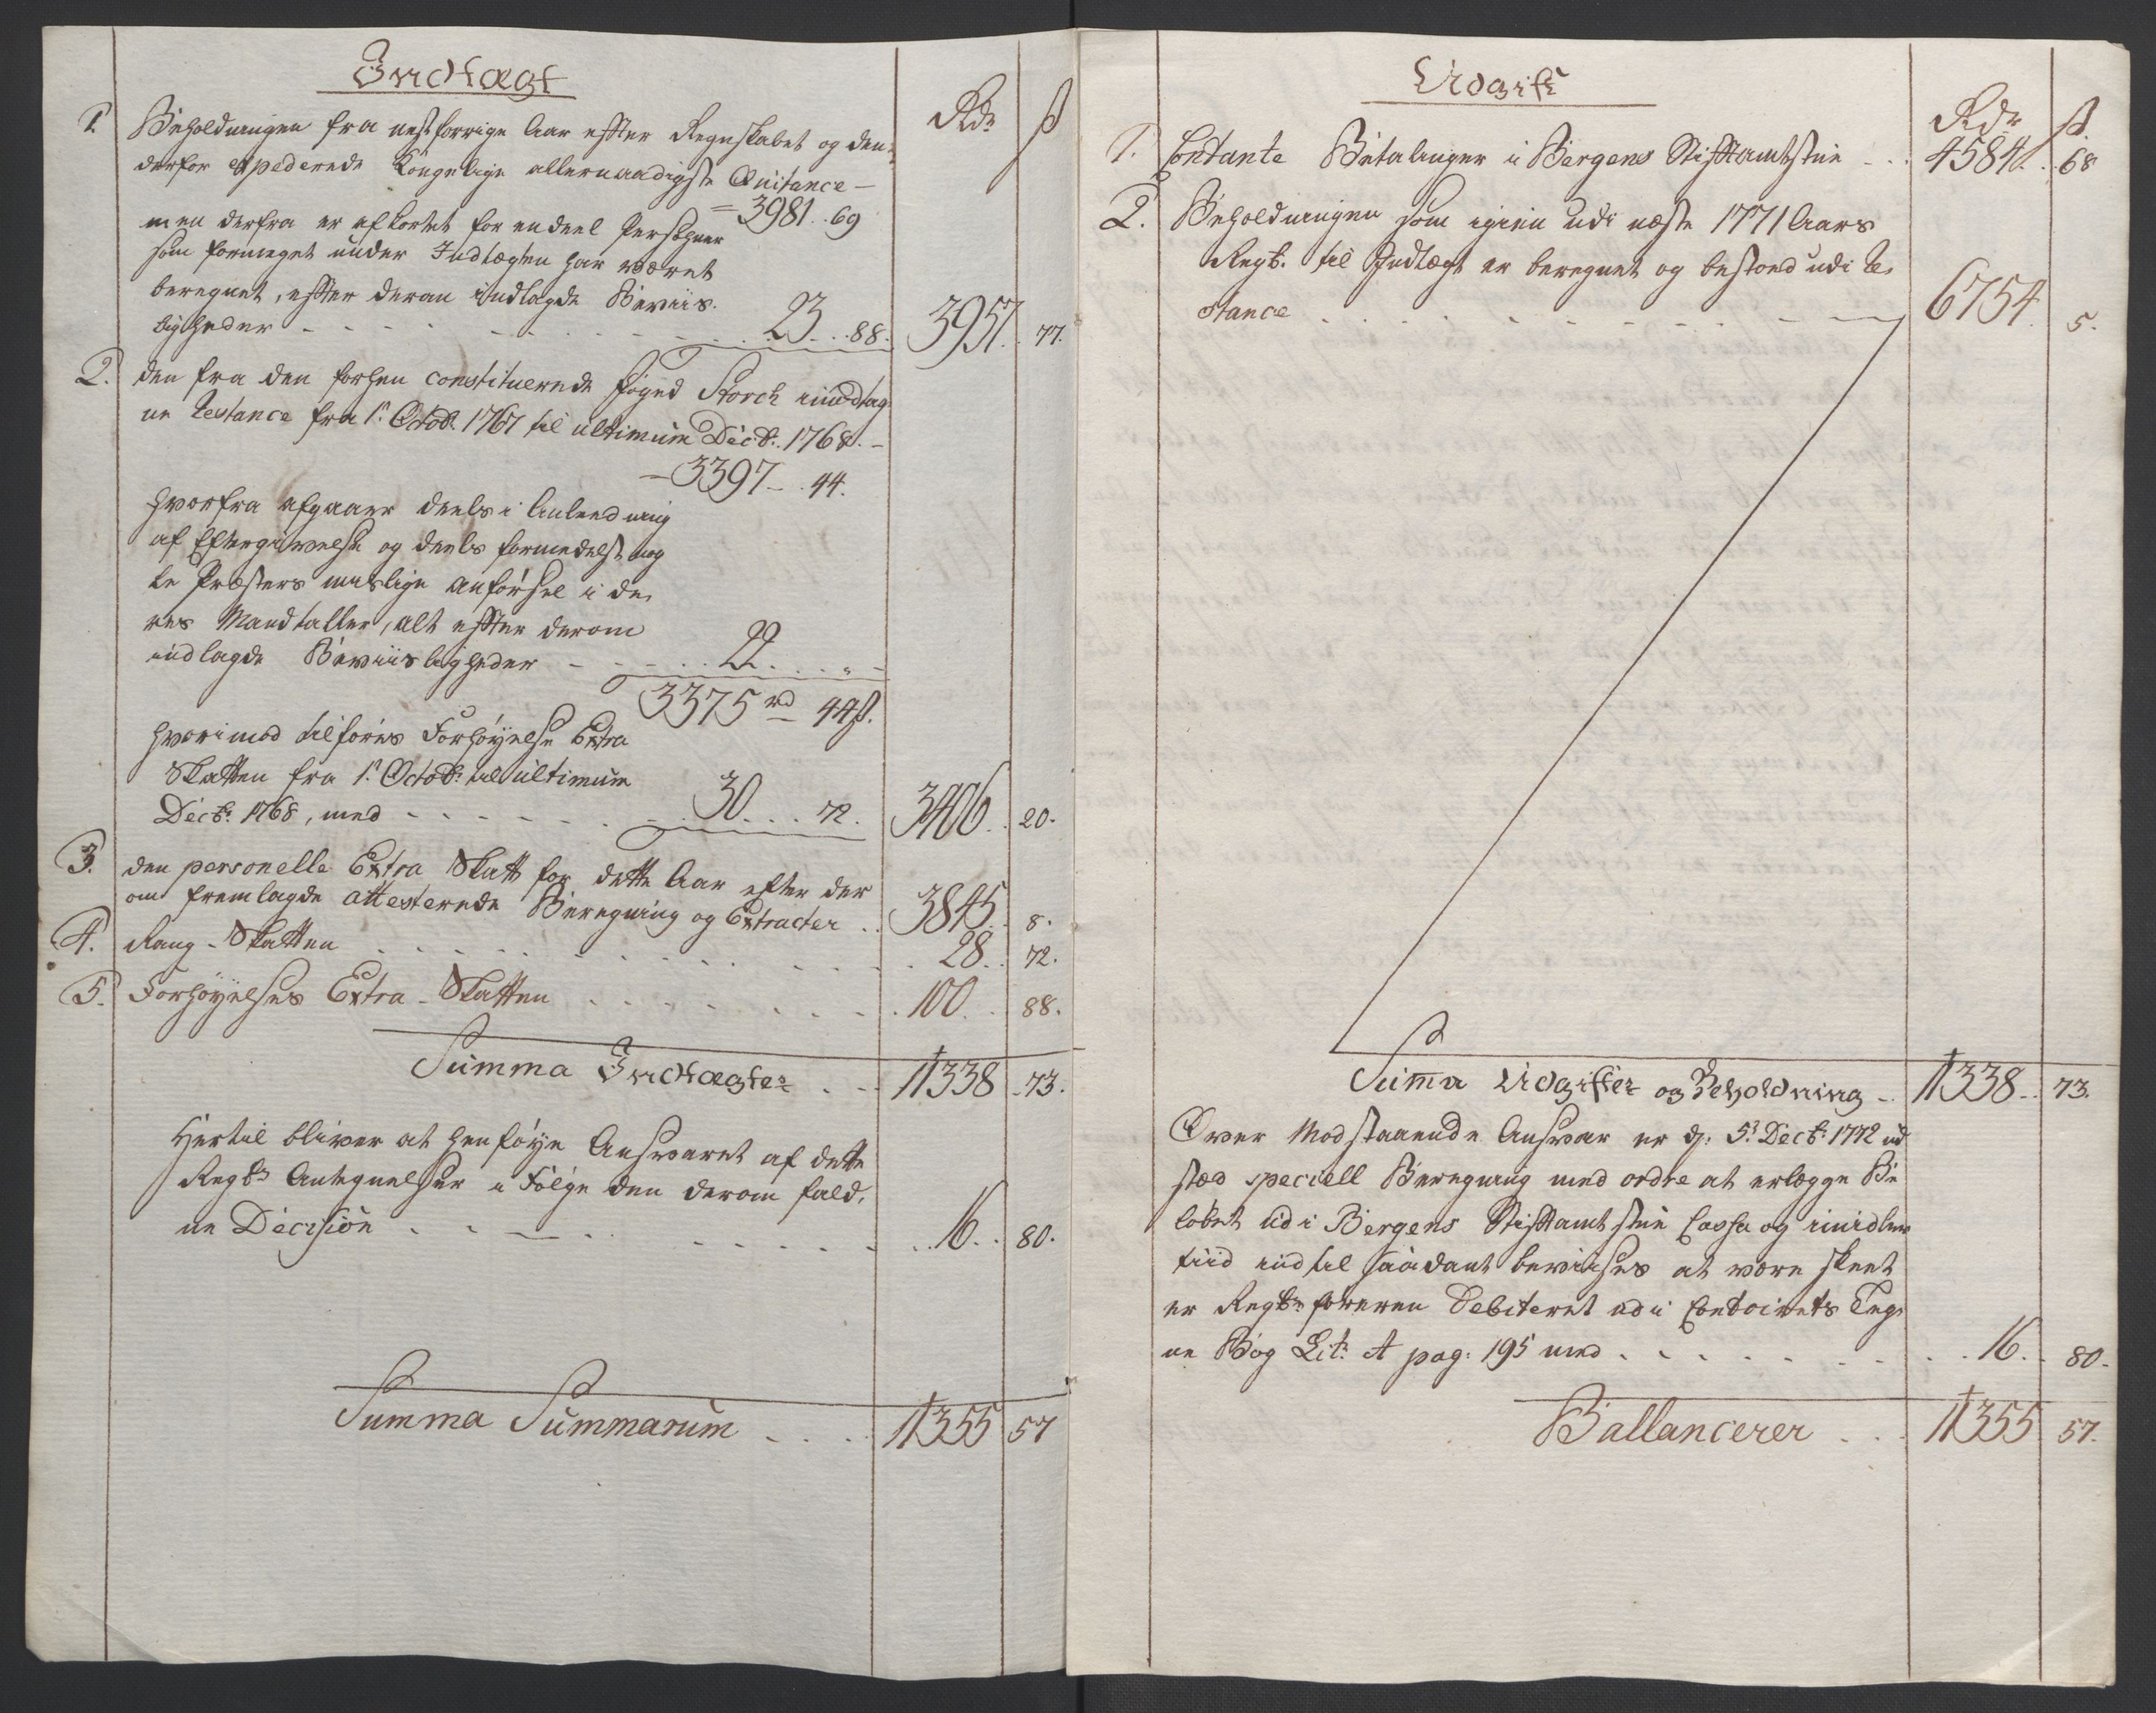 Indtægt
Rdr ß
1. Beholdningen fra nestforrige Aar efter Regnskabet og den
derfor expederede Kongelige allernaadigste Quitance —
= 3981. 69
men derfra er afkortet for endeel Persohner
som formeget under Indtægten har været
beregnet, efter deran indlagde Beviis-
ligheder - - - 23. . 88. 3957. 77.
2. den fra den forhen constituerede Foged Storch imodtag-
ne Restance fra 1. Octob. 1767 til ultimum Decb. 1768. —
— 3397 — . 44.
hvorfra afgaaer deels i Anledning
af Eftergivelse og deels formedelst nog-
le Præsters urigtige anførsel i de-
res Mandtaller, alt efter derom
indlagde Beviisligheder - - - 22. . . „ -
3375 rd 44 ß.
hvorimod tilføres Forhøyelse Extra
Skatten fra 1. Octob. til ultimum
Decb. 1768, med - - - 30. . . 72. 3406. 20.
3. den personelle Extra Skatt for dette Aar efter der
om fremlagde attesterede Beregning og Extracter . . 3845. 8.
4. Rang-Skatten . . . 28. . 72.
5. Forhøyelses Extra-Skatten . . . 100. . 88.
Summa Indtægter . . - 11338. 73.
Hertil bliver at henføye Ansvaret af dette
Regsk. Antegnelser i Følge den derom fald-
ne Decision . . - 16. . 80.
Summa Summarum . . . . 11355 57
Udgift
Rdr ß.
1. Contante Betalinger i Bergens Stiftamtstue - . . 4584. . 68
2. Beholdningen som igien udi næste 1771 Aars
Regsk. til Indtægt er beregnet og bestoed udi Re-
stance . . . 6754. 5.
Summa Udgifter og Beholdning - . 11338. . 73.
Over Modstaaende Ansvar er d. 5. Decb. 1772 ud
stæd speciell Beregning med ordre at erlægge Be
løbet udi Bergens Stiftamtstue Cassa og imidler
tiid indtil saadant beviises at være skeet
er Regsk. føreren Debiteret udi Contoirets Teg-
ne Bog Lit. A pag: 195 med . - - . . 16. . 80.
Ballancerer . . . 11355 57.